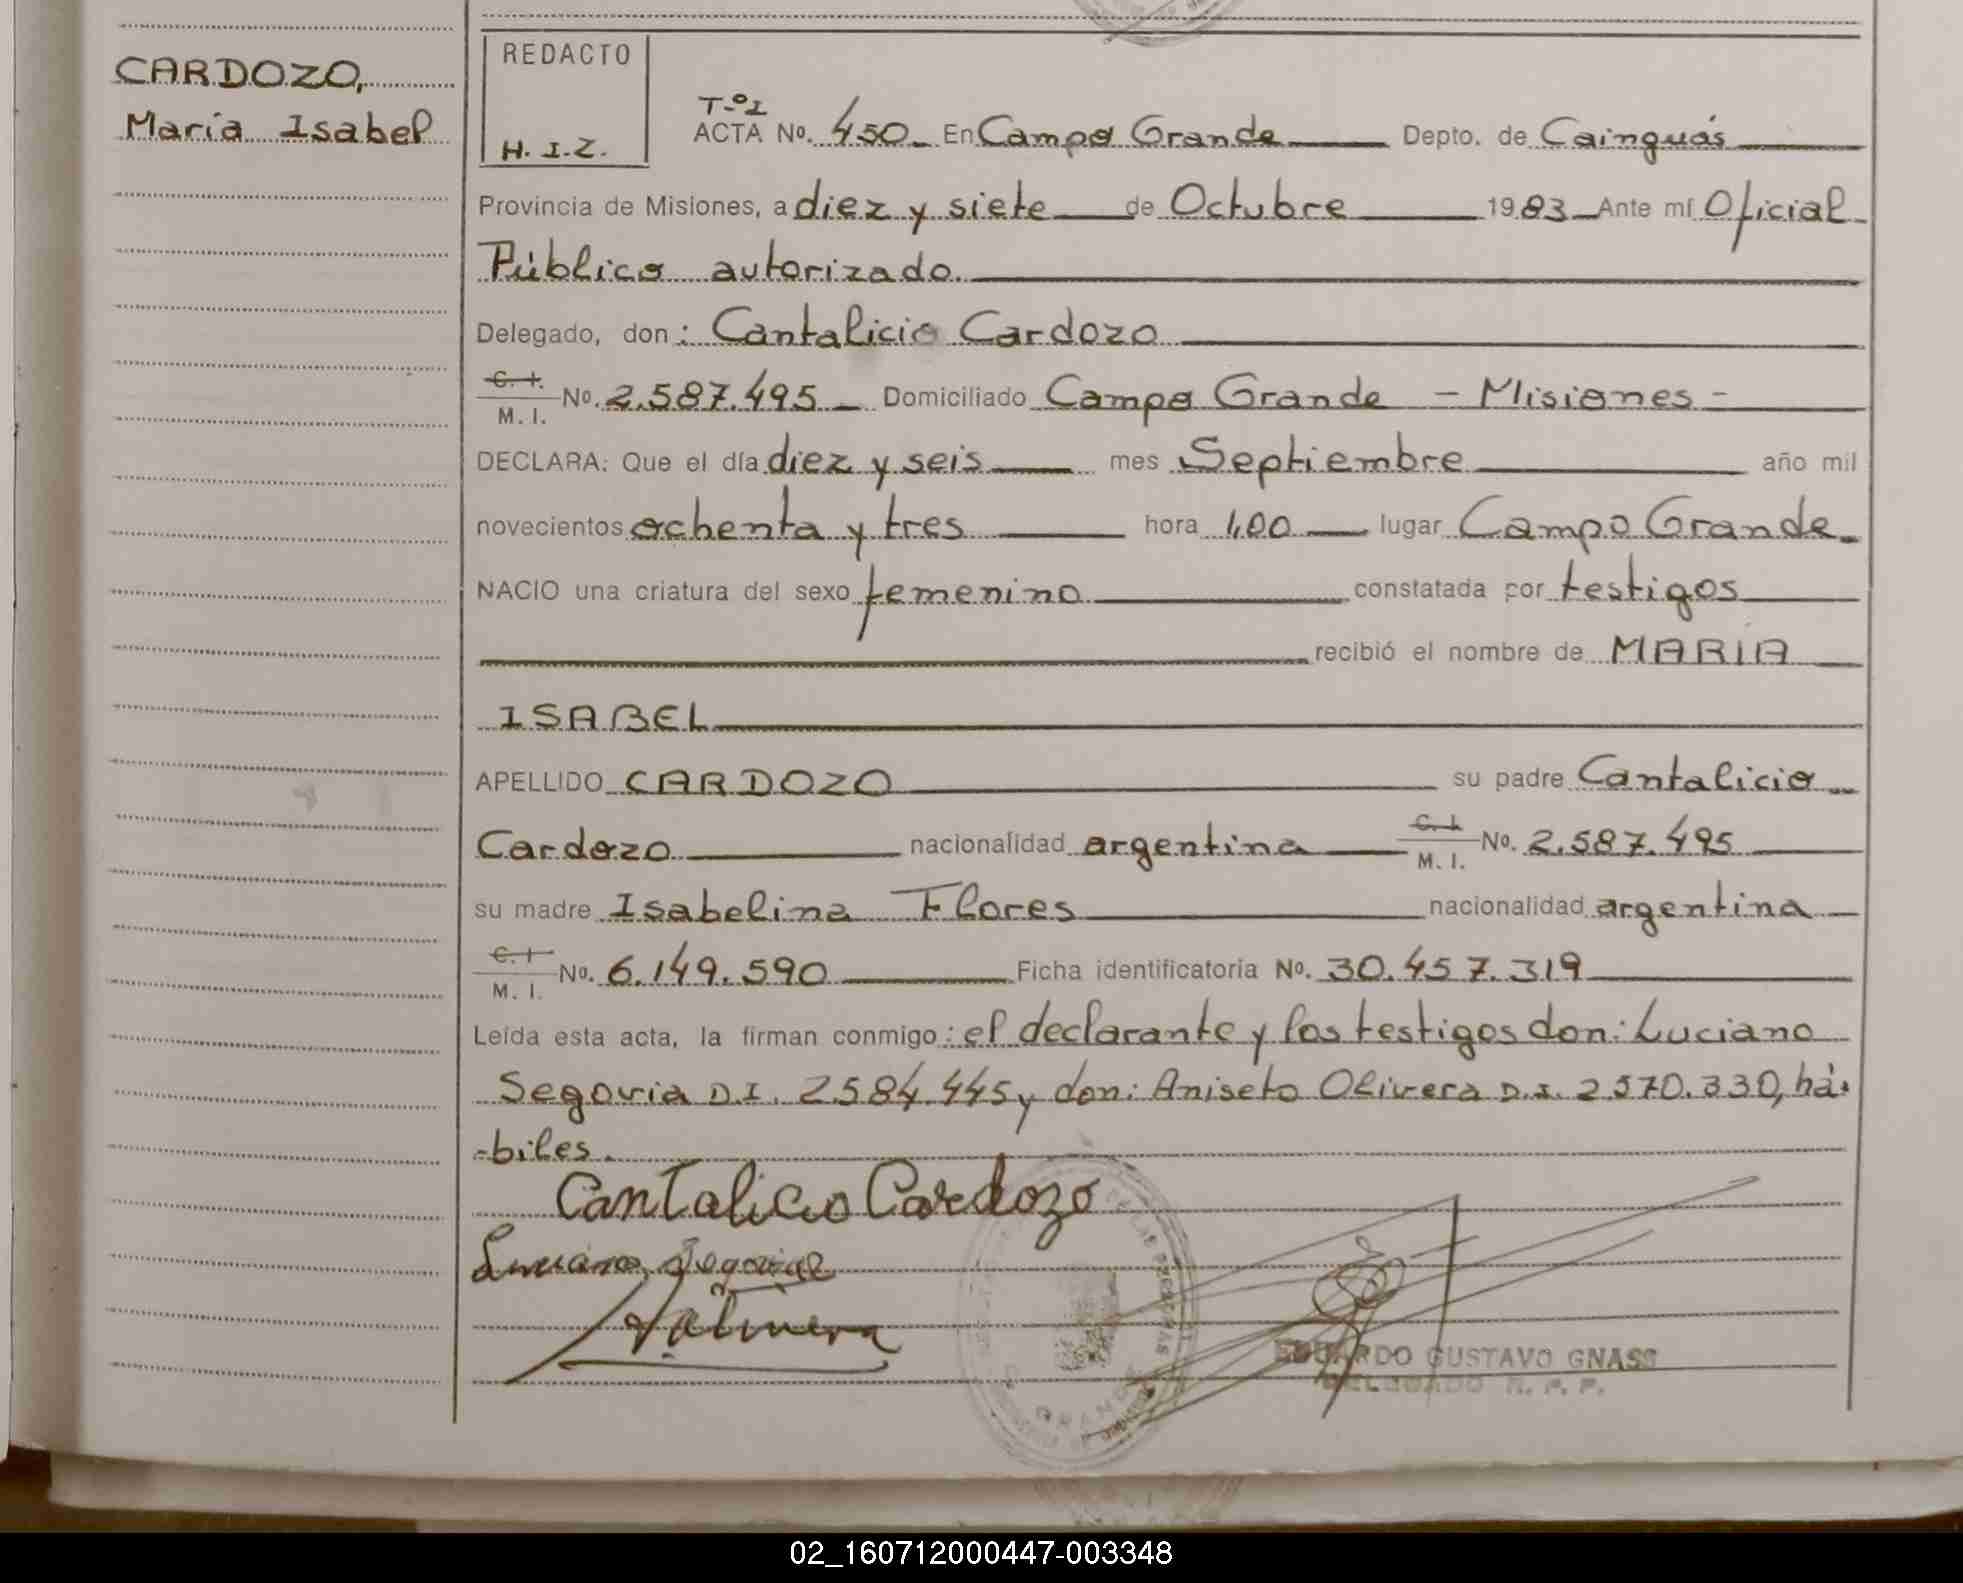 CARDOZO,
María Isabel
REDACTO
H. I. Z.
T.º I
ACTA Nº. 450 En Campo Grande Depto. de Cainguás
Provincia de Misiones, a diez y siete de Octubre 1983 Ante mí Oficial
Público autorizado.
Delegado, don: Cantalicio Cardozo
C. I. M. I. Nº. 2.587.495 Domiciliado Campo Grande - Misiones -
DECLARA: Que el día diez y seis mes Septiembre año mil
novecientos ochenta y tres hora 1,00 lugar Campo Grande
NACIO una criatura del sexo femenino constatada por testigos
recibió el nombre de MARIA
ISABEL
APELLIDO CARDOZO su padre Cantalicio
Cardozo nacionalidad argentina C. I. M. I. Nº. 2.587.495
su madre Isabelina Flores nacionalidad argentina
C. I. M. I. Nº. 6.149.590 Ficha identificatoria Nº. 30.457.319
Leída esta acta, la firman conmigo: el declarante y los testigos don: Luciano
Segovia D.I. 2584.445 y don: Aniseto Olivera D.I. 2570.330, há-
-biles.
Cantalicio Cardozo
Luciano Segovia
EDUARDO GUSTAVO GNASS
DELEGADO R. P. P.
02_160712000447-003348